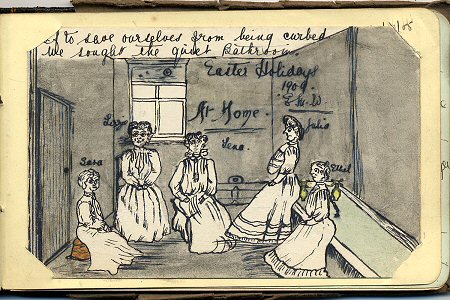 to save ourselves from being curbed
We sought the quiet Bathroom.
Easter Holidays
1909.
E.M.W
At Home.
Lizzie
Lena.
Julia
Sara
Ethel